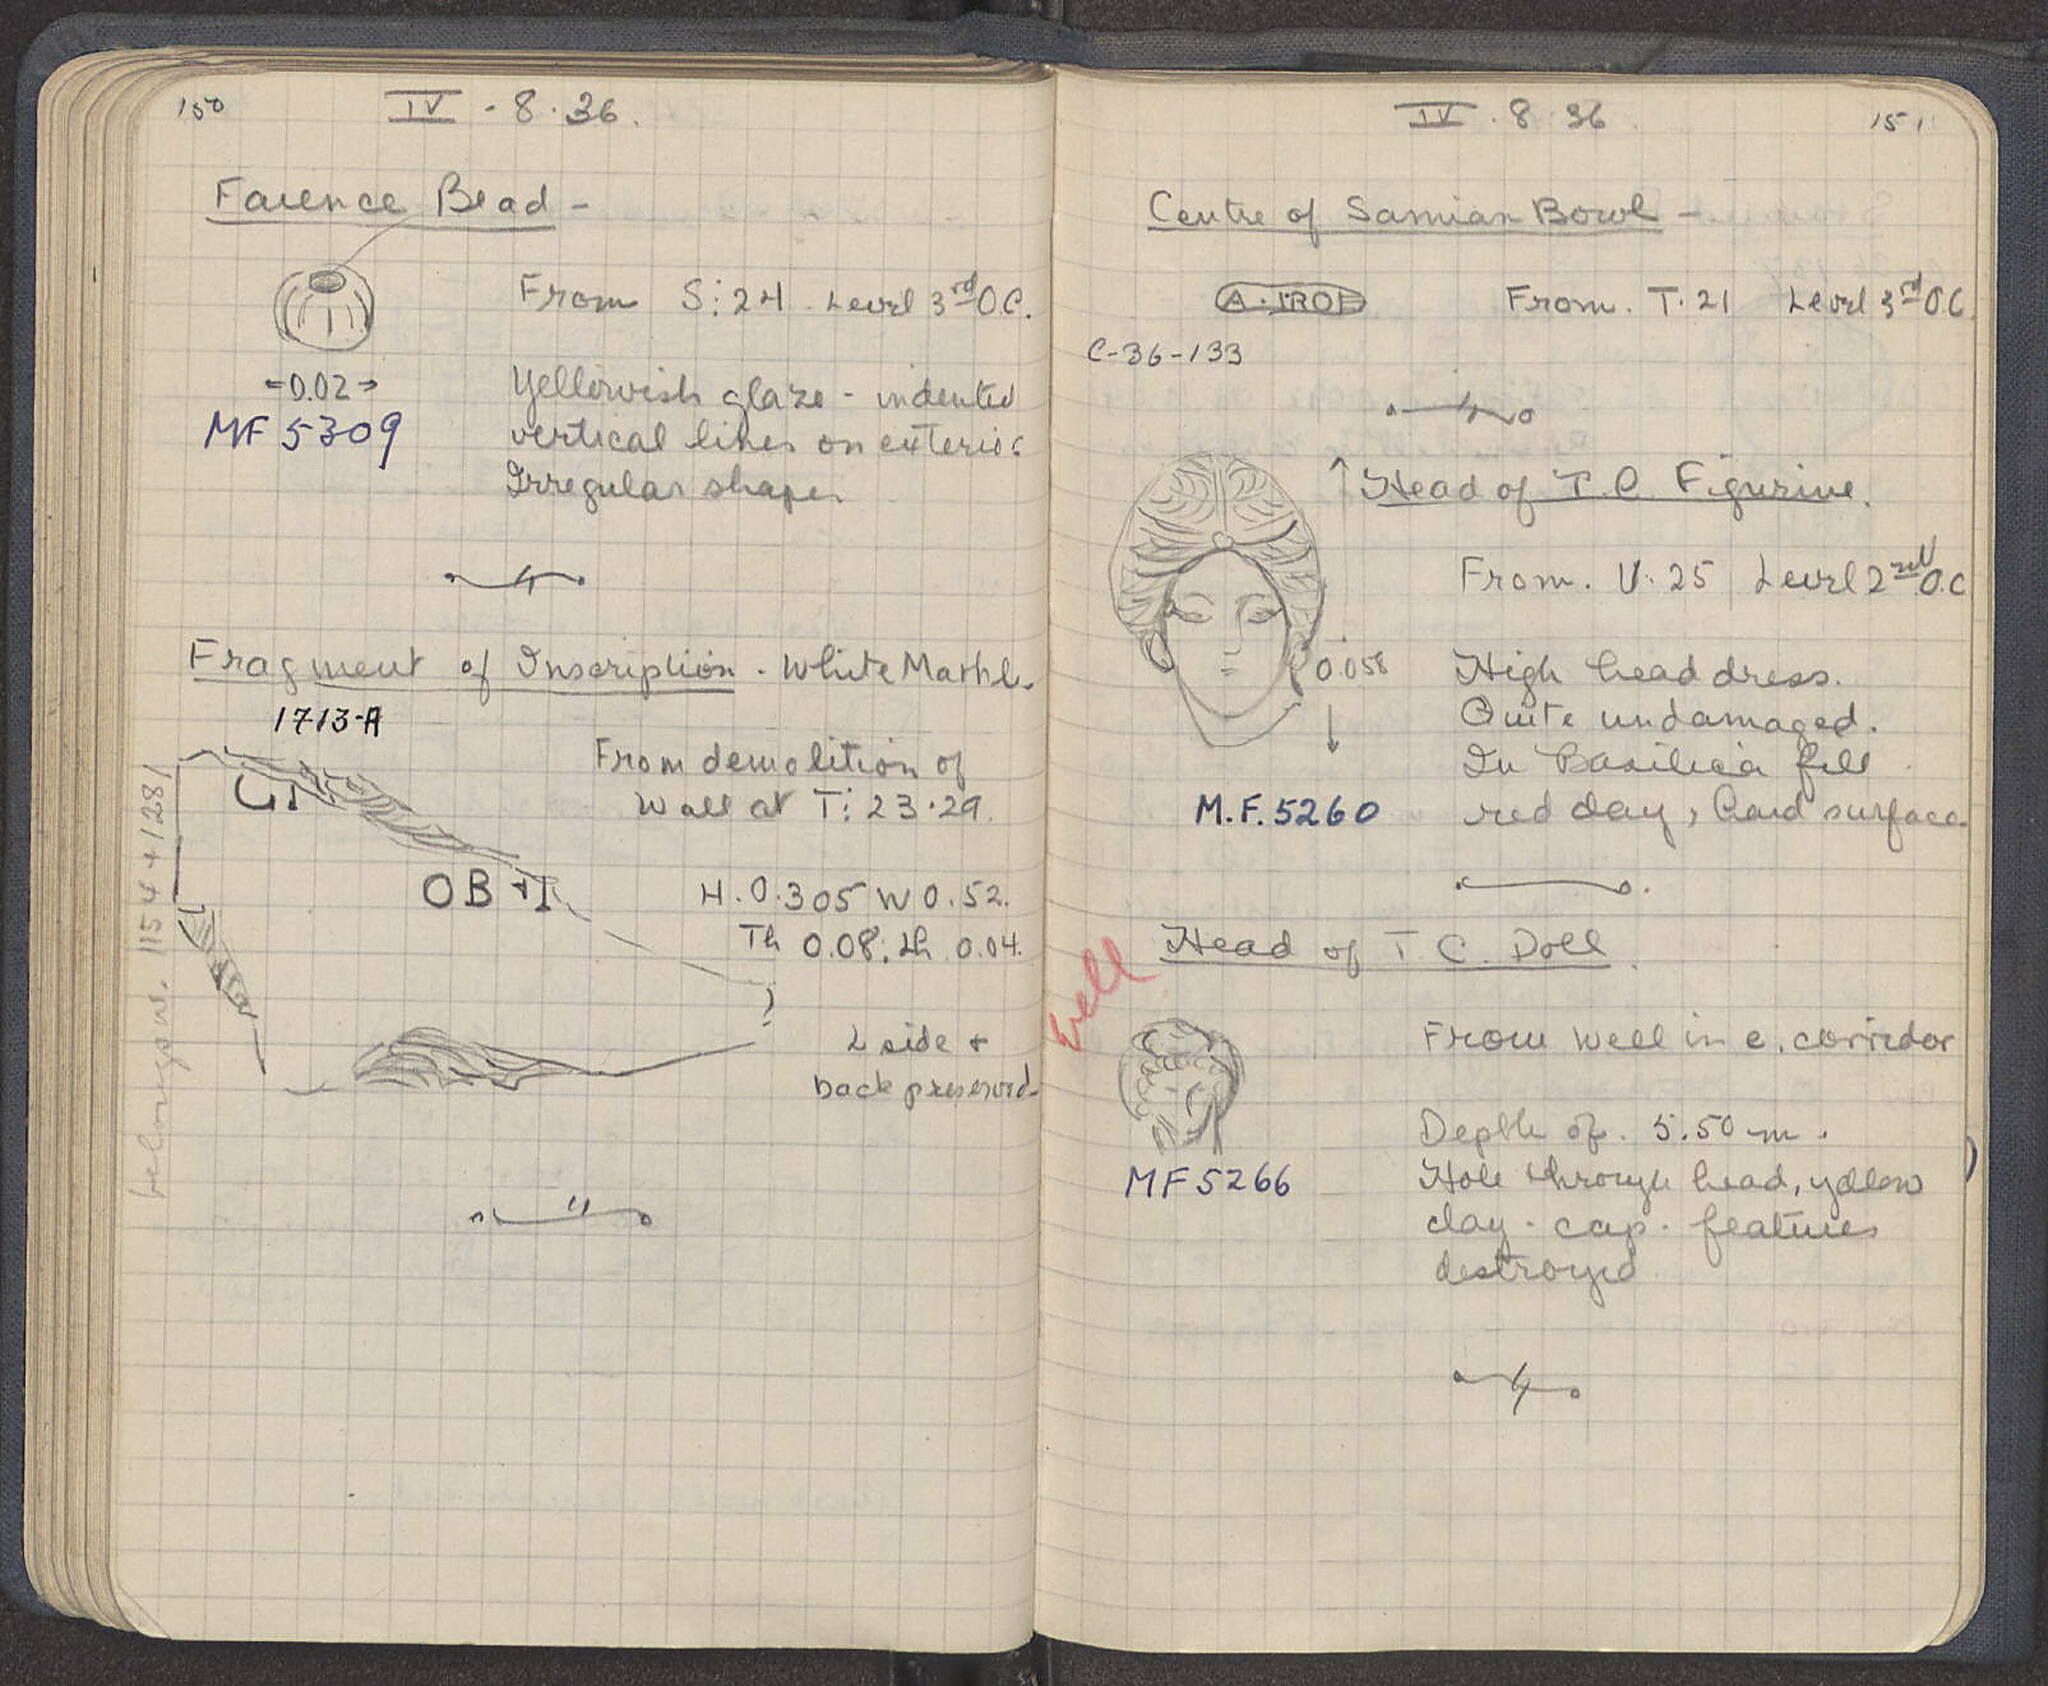 150
IV - 8 · 36.
Faience Bead -
From S: 24 . Level 3rd O.C.
0.02
MF 5309
Yellowish glaze - indented
vertical lines on exterior
Irregular shape
Fragment of Inscription . White Marble.
1713-A
From demolition of
Wall at T: 23.29.
OB
H. 0.305 W 0.52.
Th 0.08; Lh 0.04.
?
L side +
back preserved-
belongs w. 1154 + 1281
IV . 8 36
151
Centre of Samian Bowl -
From. T. 21 Level 3rd O.C.
C-36-133
Head of T.C. Figurine.
From. V. 25 Level 2nd O.C
0.058
High head dress.
Quite undamaged.
In Basilica fill
M.F. 5260
red clay, hard surface
well
Head of T. C. Doll.
From well in e. corridor
Depth of. 5.50 m.
MF 5266
Hole through head, yellow
clay - cap - features
destroyed